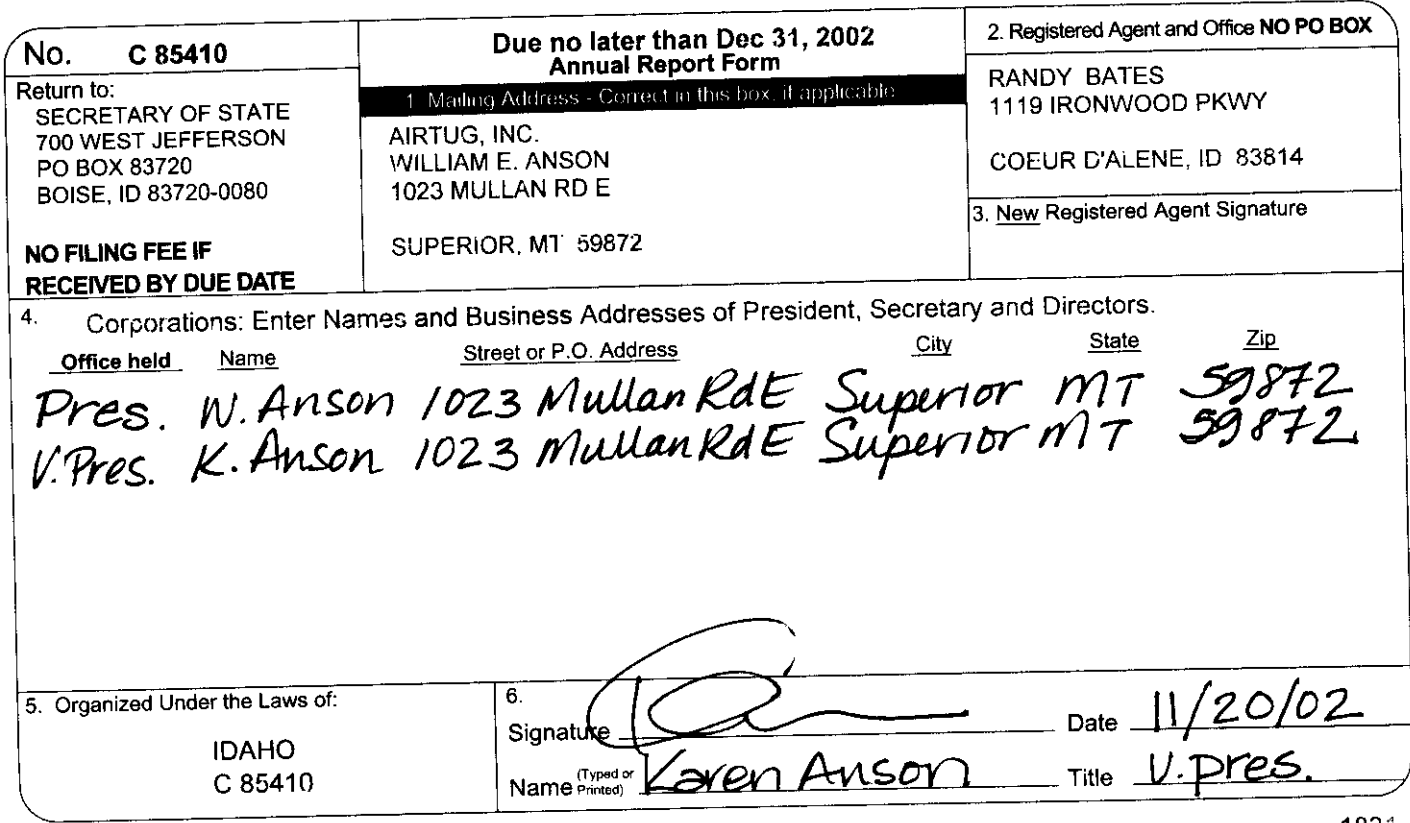 No. C 85410
Return to:
SECRETARY OF STATE
700 WEST JEFFERSON
PO BOX 83720
BOISE, ID 83720-0080
NO FILING FEE IF
RECEIVED BY DUE DATE
Due no later than Dec 31, 2002
Annual Report Form
1. Mailing Address - Correct in this box, if applicable
AIRTUG, INC.
WILLIAM E. ANSON
1023 MULLAN RD E
SUPERIOR, MT 59872
2. Registered Agent and Office NO PO BOX
RANDY BATES
1119 IRONWOOD PKWY
COEUR D'ALENE, ID 83814
3. New Registered Agent Signature
4. Corporations: Enter Names and Business Addresses of President, Secretary and Directors.
Office held Name Street or P.O. Address City State Zip
Pres. W. Anson 1023 Mullan Rd E Superior MT 59872
V. Pres. K. Anson 1023 Mullan Rd E Superior MT 59872
5. Organized Under the Laws of:
IDAHO
C 85410
6.
Signature Date 11/20/02
Name (Typed or Printed) Karen Anson Title V. pres.